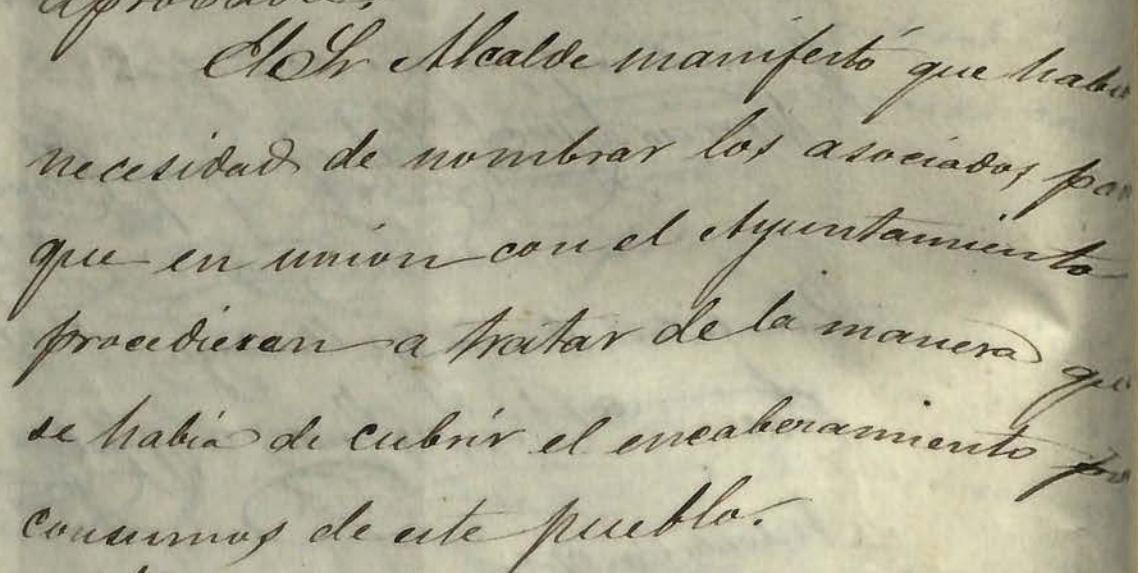 aprobada.
El Sr Alcalde manifestó que habia
necesidad de nombrar los asociados para
que en union con el Ayuntamiento
procedieran a tratar de la manera que
se habia de cubrir el encabezamiento por
consumos de este pueblo.